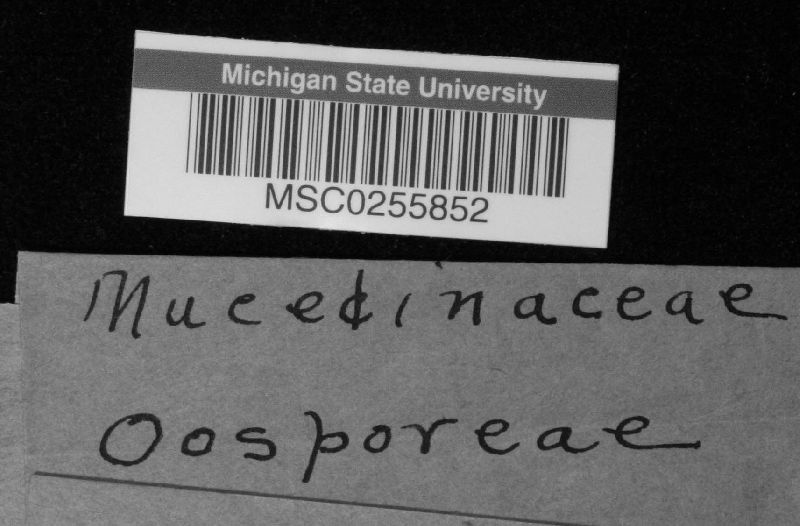 Michigan State University
MSC0255852
Mucedinaceae
Oosporeae